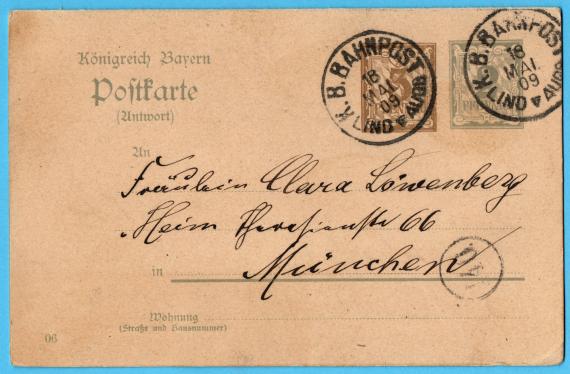 Königreich Bayern
Postkarte
(Antwort)
K.B. BAHNPOST
18
MAI.
09
LIND ▾ AUGB
3
K.B. BAHNPOST
18
MAI.
09
LIND ▾ AUGB
An
Fräulein Clara Löwenberg
Heim Theresienstr 66
in München
Wohnung
(Straße und Hausnummer)
06